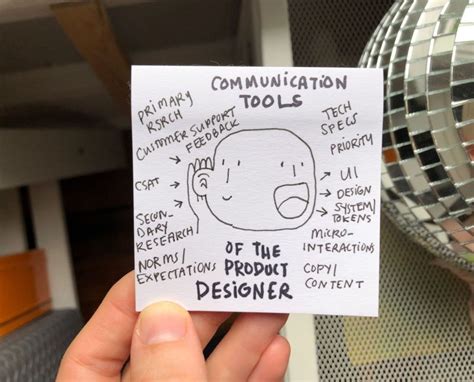 COMMUNICATION
TOOLS
PRIMARY
RSRCH
CUSTOMER SUPPORT
FEEDBACK
CSAT
SECON-
DARY
RESEARCH/
NORMS/
EXPECTATIONS
TECH
SPECS
PRIORITY
UI
DESIGN
SYSTEM/
TOKENS
MICRO-
INTERACTIONS
COPY/
CONTENT
OF THE
PRODUCT
DESIGNER